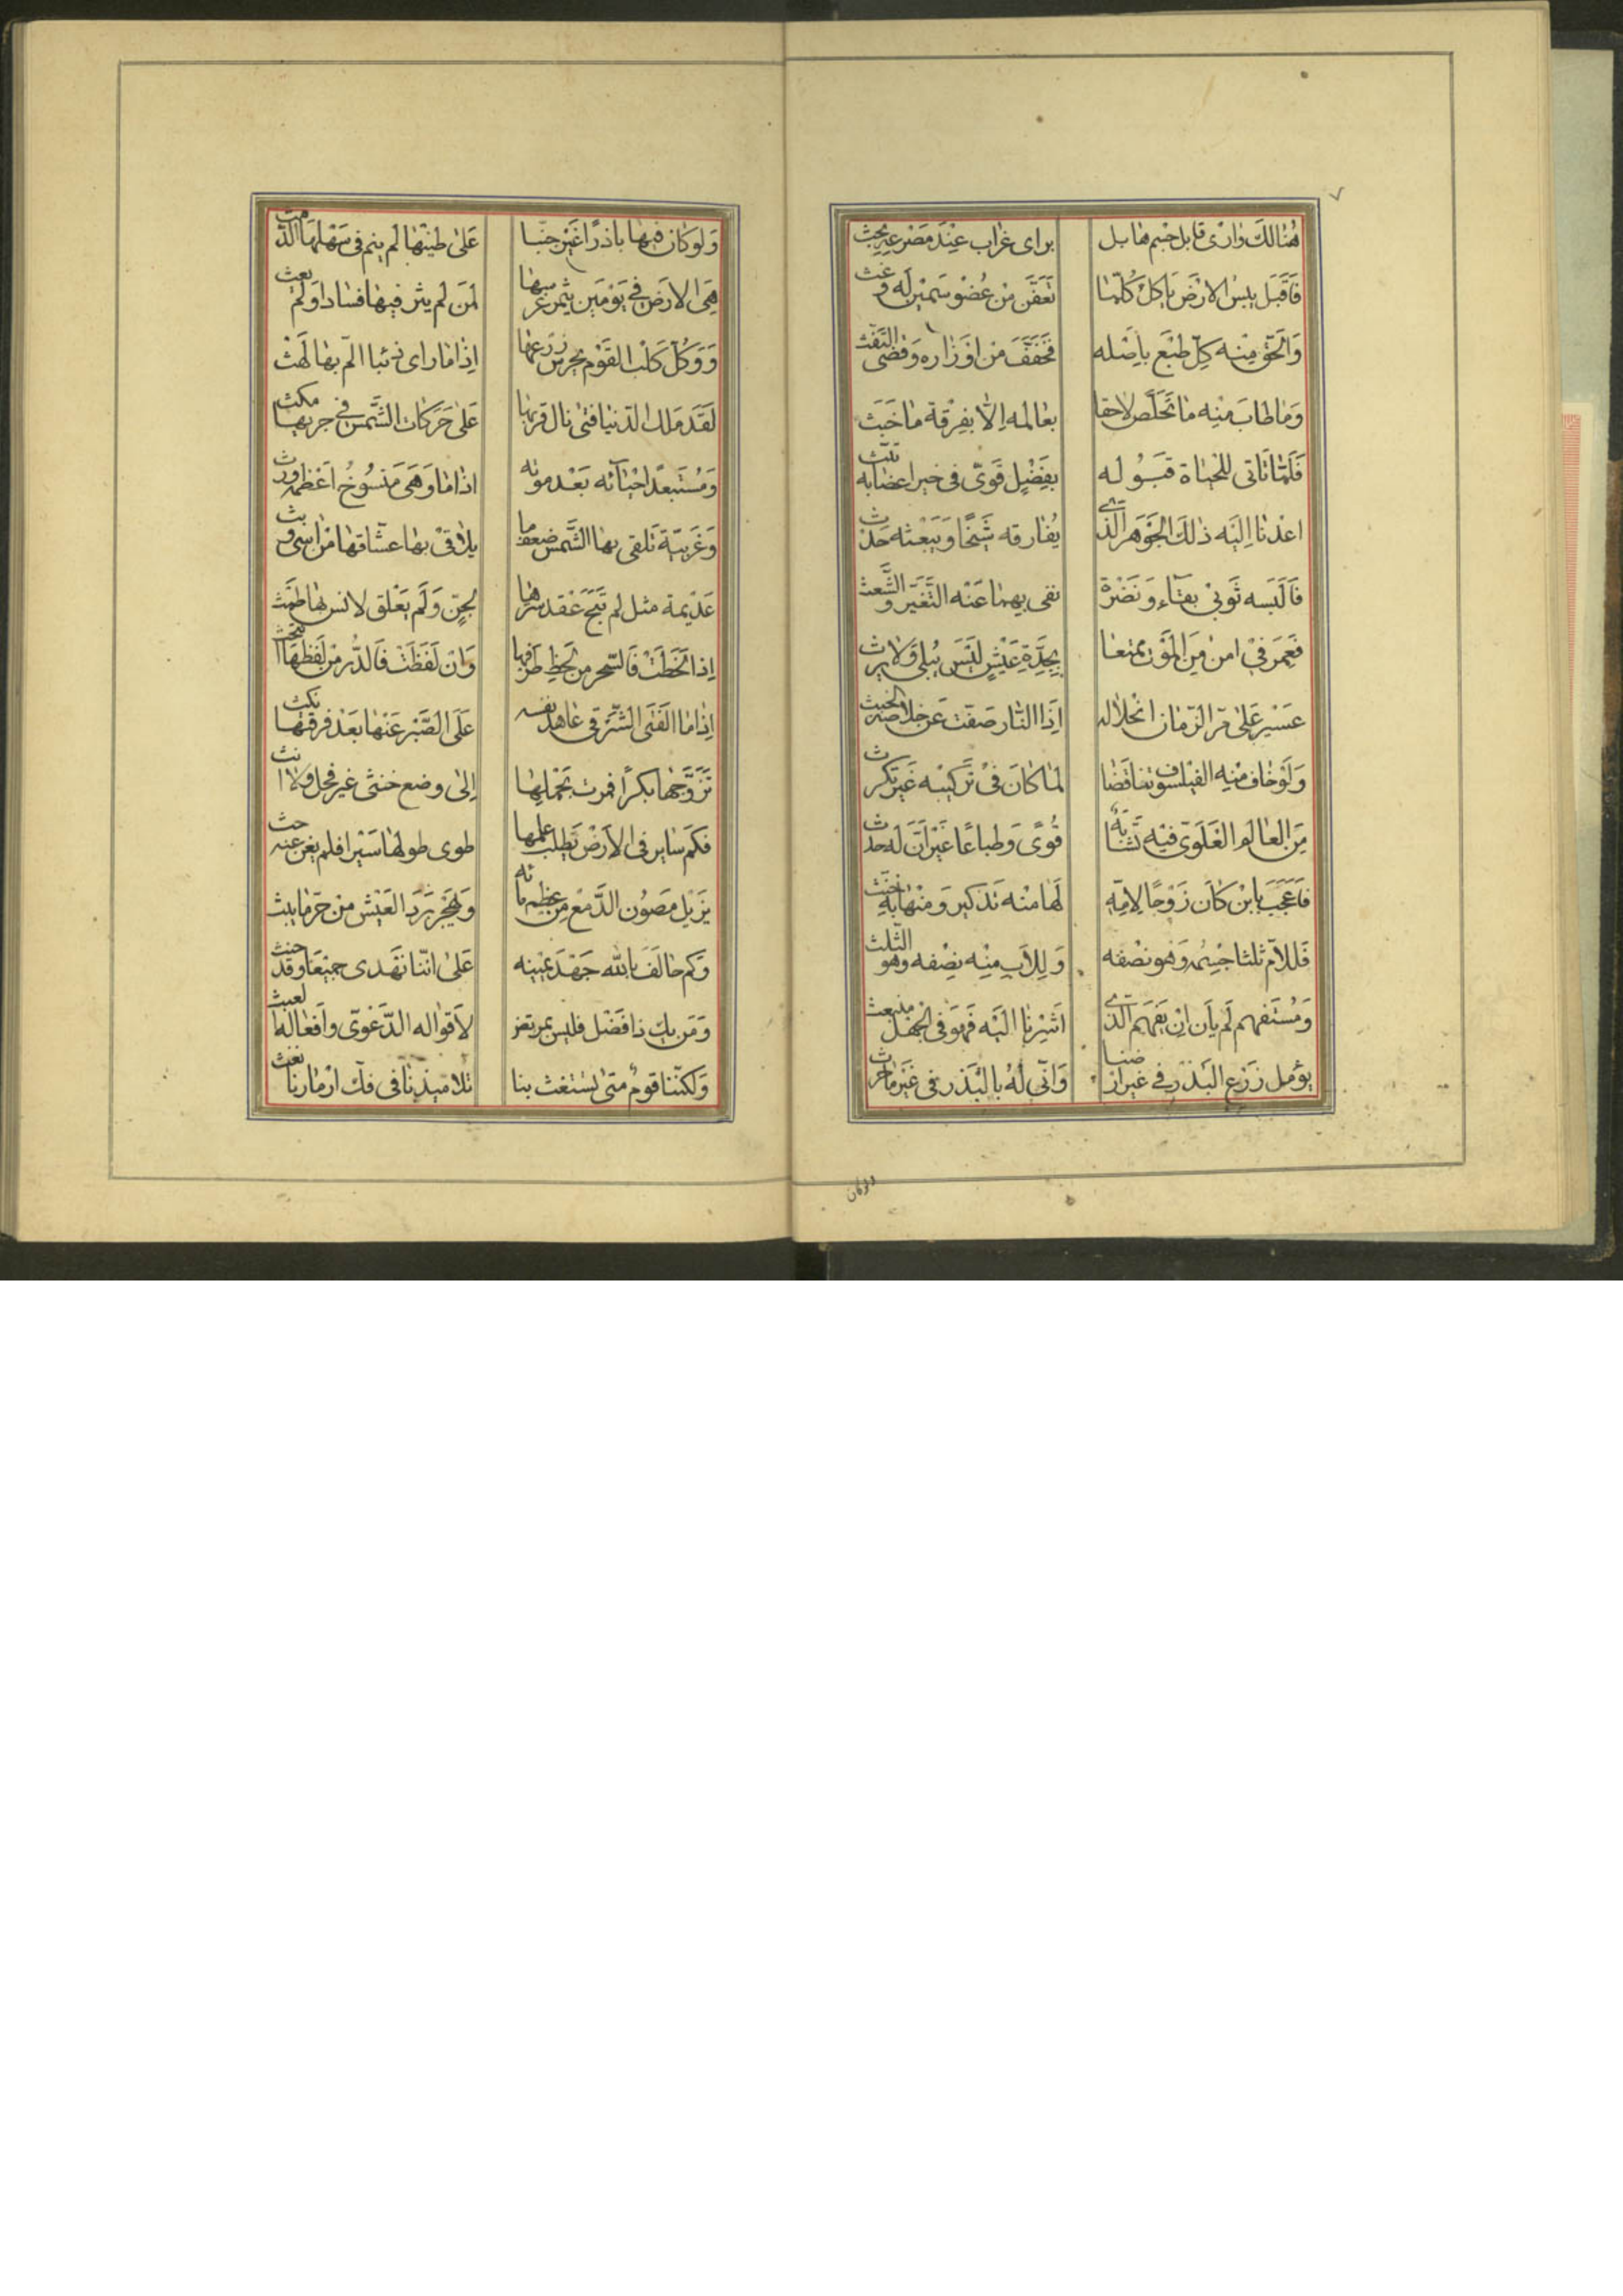 هُنالكَ وارى قابل جسم هابل برای غراب عِندَ مصرعه بحث
فَاَقبَل يبس الارض ياكل كلّما تعَفّن مِن عُضو سَمين له وغث
وَالحق مِنه كلّ طبع باَصله فخفّف من اوزاره وقضى التفث
وَما طابَ مِنه ما تَخلّص لاحقا بعالمه اِلّا بفِرقة ما خبَث
فَلمّا تاتى للحياة قبَوله بفَضل قوىً فى خير اعضائه ثلث
اعدنا اِليه ذلكَ الجَوهر الّذى يُفارقه شَيخًا وَيَبعثه حدث
فَاَلبَسه ثوبىْ بقآء ونَضرة نفى بهما عَنه التَّغيّر والشَّعث
فَعمر فى امن مِن المَوت ممتعا بِجدّة عَيش ليسَ يُبلى ولا يرث
عَسير على مرّ الزمان انحلاله اِذا النار صَفت عن خلاصه الخبث
وَلو خاف مِنه الفيلسوف تناقضا لما كانَ فى تَركيبه غَير مكترث
مِن العالم العَلَوى فيه تَشابه قُوىً وَطباعًا غير اَنّ له حدث
فَاَعجَب بابن كانَ زوجًا لامّه لها منه تذكير ومنها به خنث
فَللامّ ثلثا جسمه وهو نصفه وَلِلاَبِ مِنه نِصفه وهو الثّلث
وَمُستَفهم لَم يان ان يَفهم الّذى اشَرنا اليه فَهوَ فى الجهل منبعث
يؤمل زرع البذر فى غير ارضنا وَانّى لهُ بالبَذر فى غَير ما حرث
ولوكان
وَلو كان فيها باذرًا غيَر جنبنا على طينها لم ينم فى سَهلها الدّمث
هِىَ الارض فى يَوْمَين يثمر غرسها لمَن لم يثر فيها فسادا ولم يعث
وَوكّل كَلب القوْم يحرس زرعها اِذا ما راى ذئبا المّ بها لهَث
لَقد ملك الدّنيا فتى نال قربها عَلى حَركات الشّمس فى جريها مكث
وَمُستَبعدًا احيآئه بَعْد موته اذا ما وَهى مَنسُوخُ اَعظمه ورث
وَغَربيّة تلقى بها الشَّمس ضعف ما يلاقى بها عشّاقها مِن اسى وبث
عَديمة مثل لم تبح عَقد سرّها لجِنّ وَلم يَعْلق لانس بها طمث
اِذا لحَظت فالسّحر من لَحظِ طرفها وَاِن لفَظَت فَالدُّر مِن لَفظها
اِذا ما الفَتى الشّرقى عاهد نفسه عَلَى الصَّبر عَنها بَعْد فرقتها نكث
تَزوّجها بكرًا فمرت بحَملها اِلى وضع خنثى غير فحل ولا انث
فكَم ساير فى الارَض يَطلب علمها طوى طولها سَيرا فلم يغن عنه حث
يزيل مَصُون الدَّمع مِن عظيم ما نه وَلهجر بَرد العَيش من حرّ ما يبث
وَكم حالف بالله جَهْد يَمينه عَلى انّنا نهدى جميعًا وقد حنث
وَمَن يك ذا فَضل فليس لاَقواله الدَّعوى وافعاله لعبث
وَلكنّنا قومٌ متى يستغث بنا تلاميذنا فى فكّ ازمارنا نغث